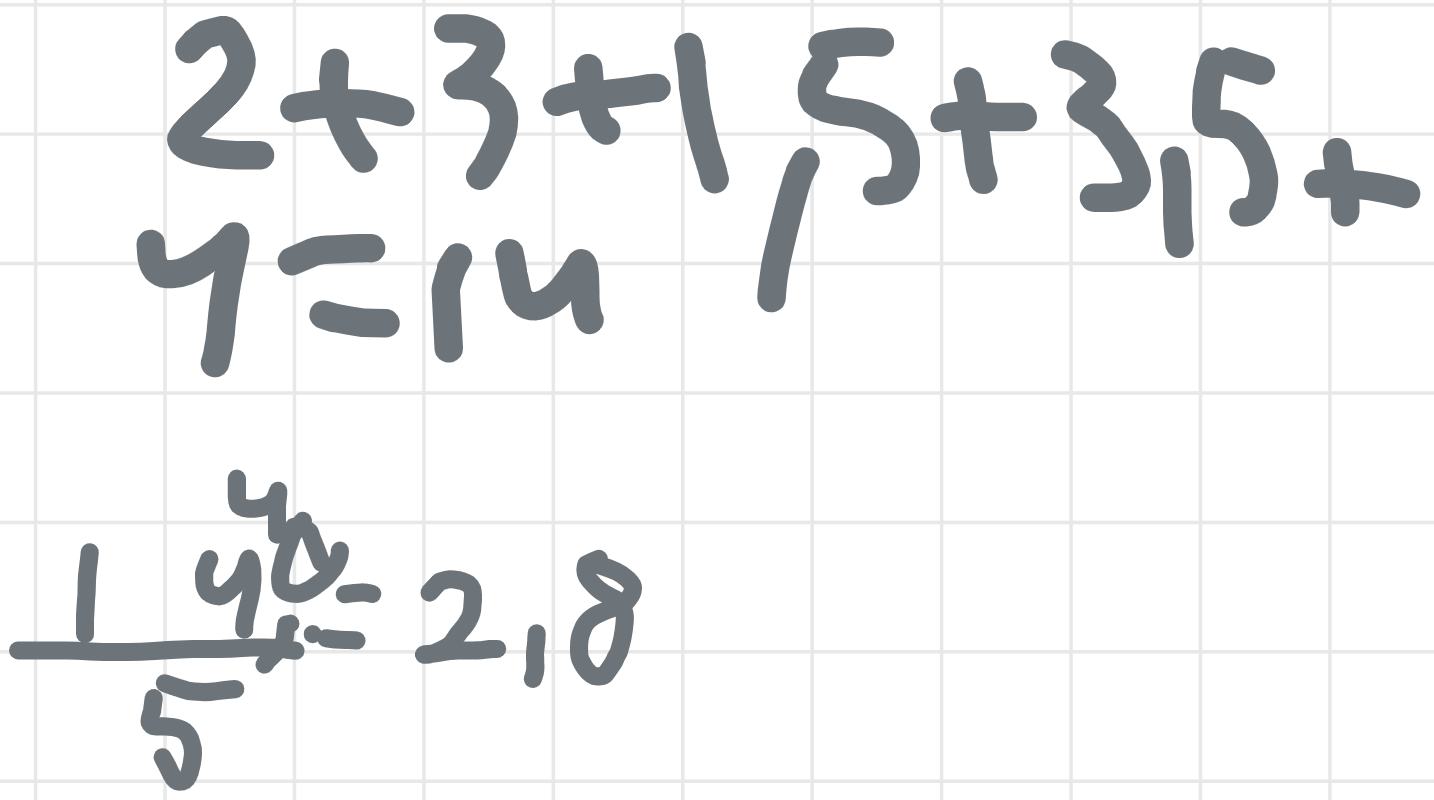 2+3+1,5+3,5+
4=14
14,40=2,8
5